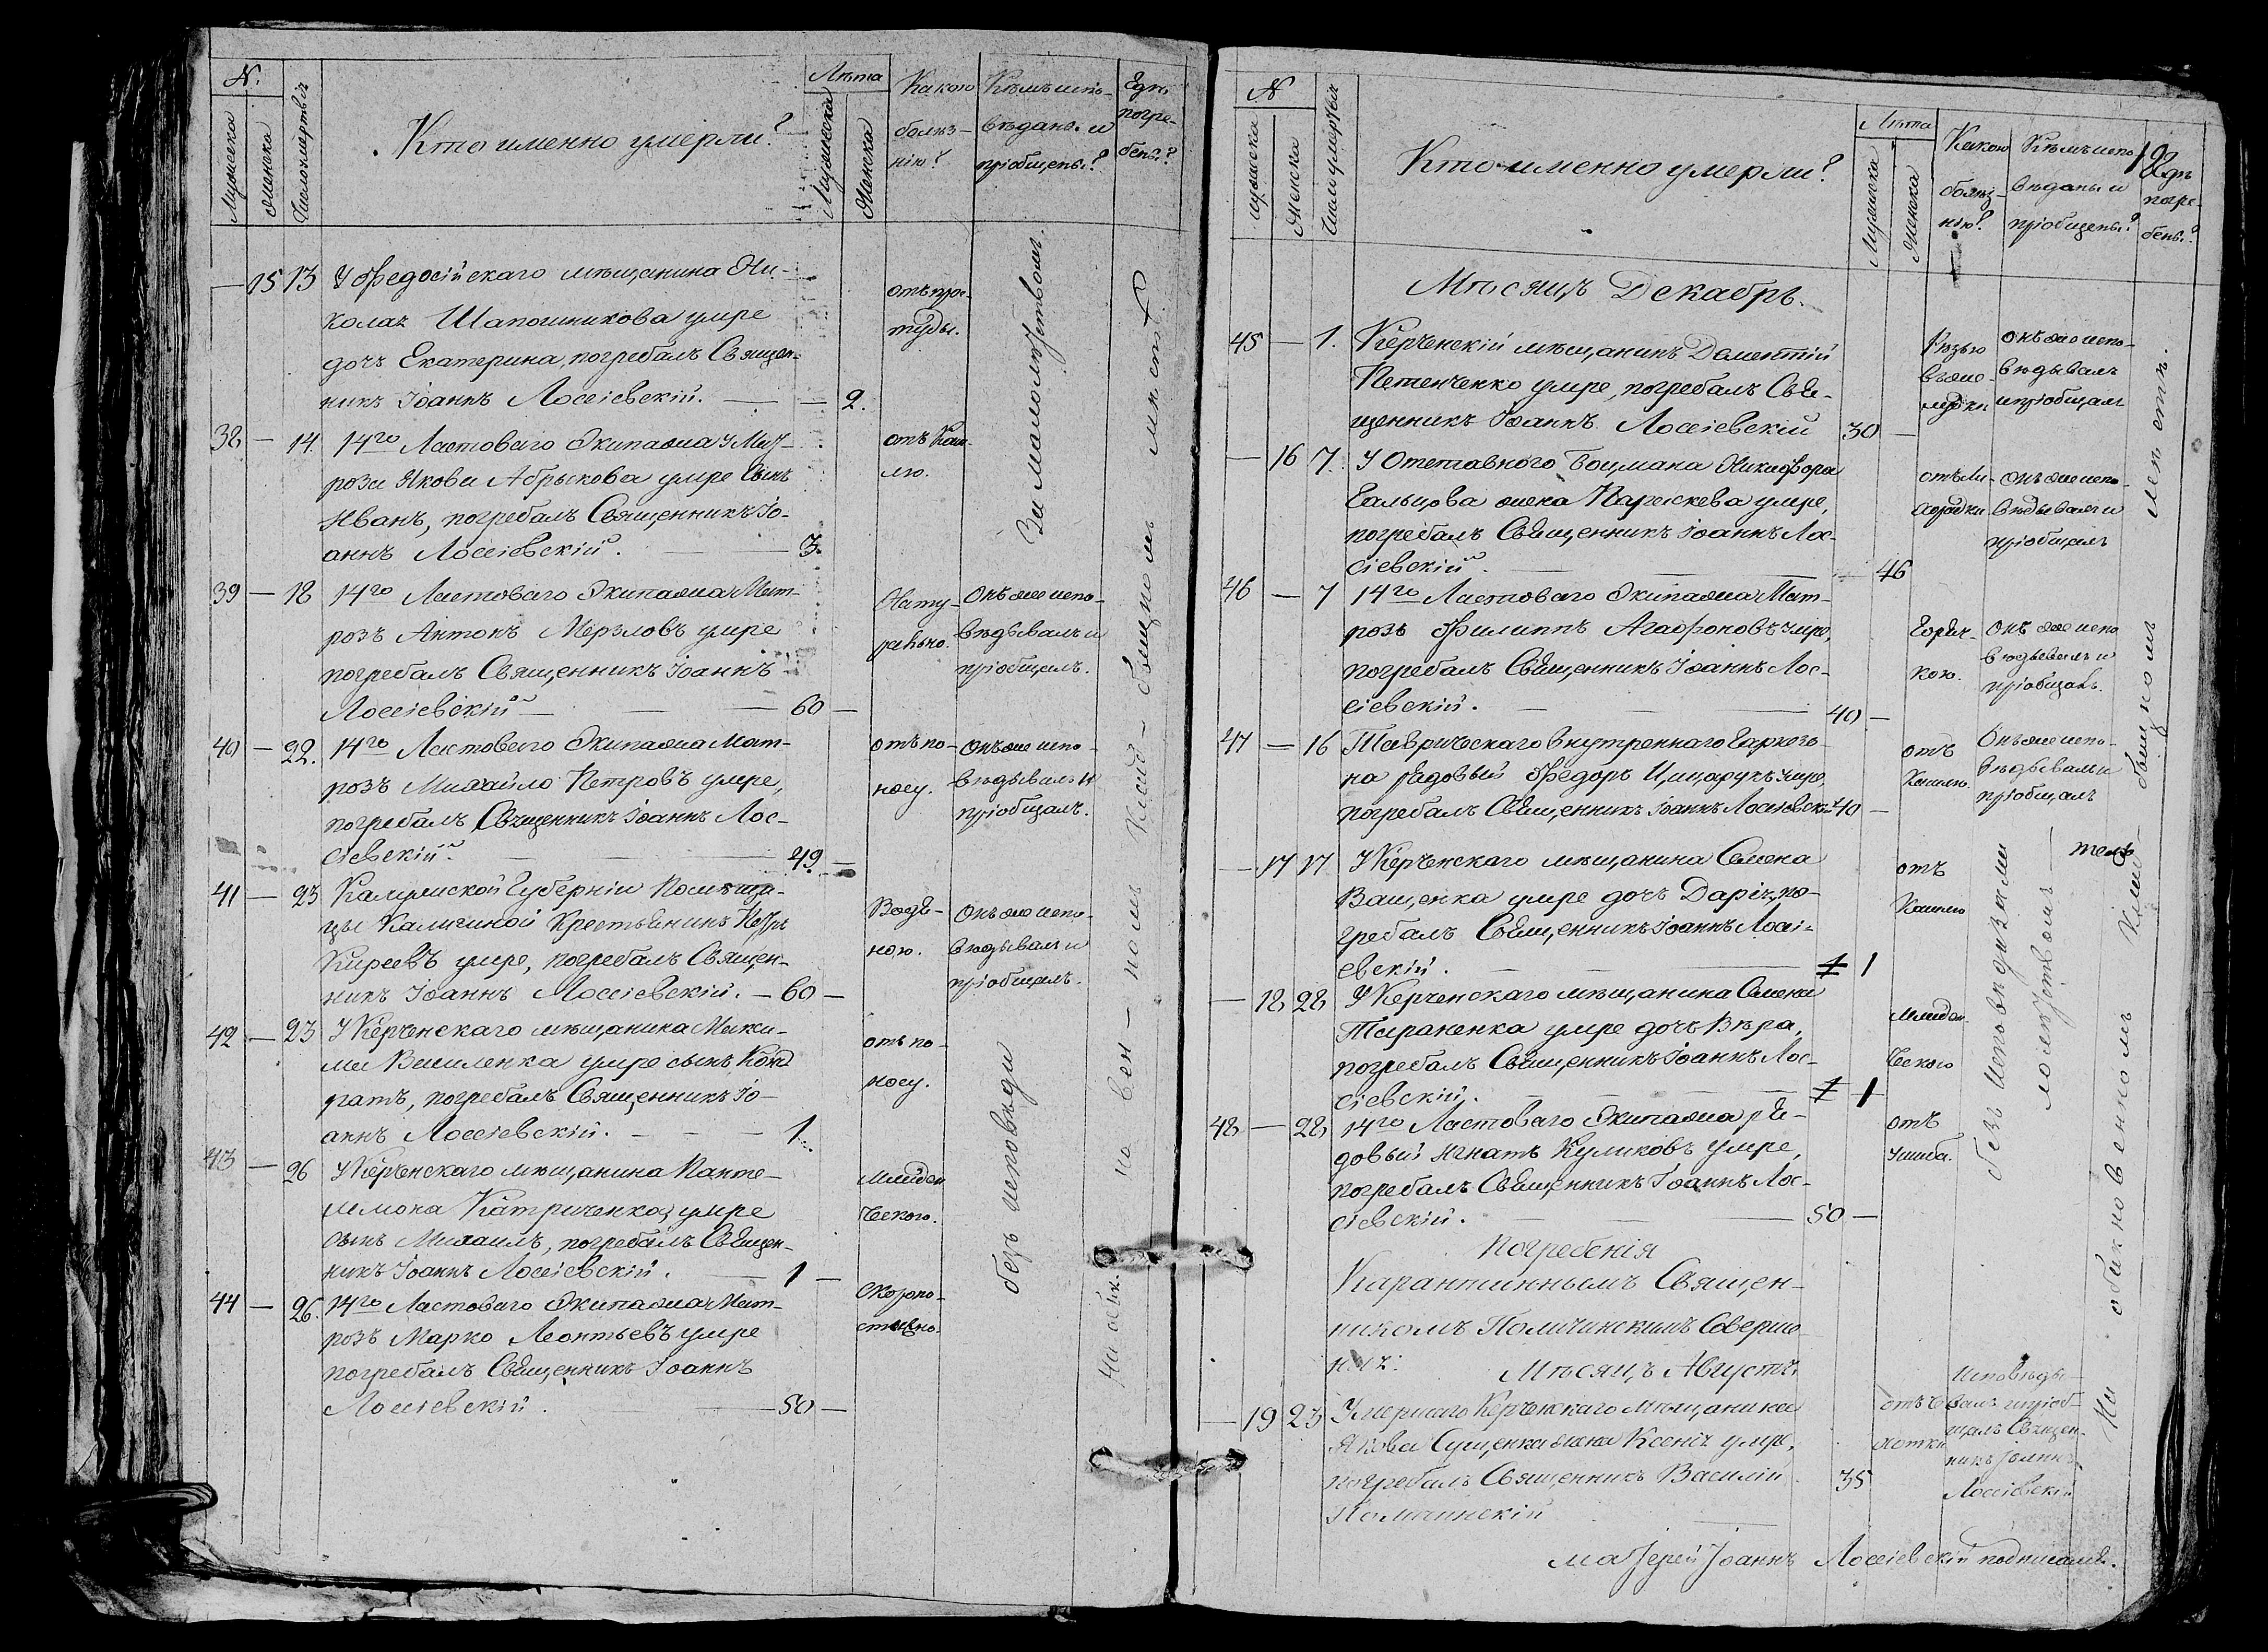 N.
Мужеска
Женска
Число смертвія
Кто именно умерли?
Лѣта
Мужеска
Женска
Какою
болѣз-
нію?
Кѣмъ испо-
вѣданы и
пріобщены?
Гдѣ
погре-
бены?
— 15 13 У Ѳедосійскаго мѣщанина Ни-
колая Шапошникова умре
дочь Екатерина, погребалъ Священ-
никъ Іоаннъ Лоссіевскій. — — 2.
отъ прос-
туды.
38 — 14. 14го Ластоваго Экипажа у Мат-
роза Якова Абрыкова умре сынъ
Иванъ, погребалъ Священникъ Іо-
аннъ Лоссіевскій. — 3.
отъ каш-
лю.
За малолѣтствомъ.
39 — 18 14го Ластоваго Экипажа Мат-
розъ Антонъ Мерзловъ умре
погребалъ Священникъ Іоаннъ
Лоссіевскій — — — 60 —
Нату-
рально.
Онъ же испо-
вѣдывалъ и
пріобщалъ.
40 — 22. 14го Ластоваго Экипажа Мат-
розъ Михайло Петровъ умре,
погребалъ Священникъ Іоаннъ Лос-
сіевскій. — — — 49 —
отъ по-
носу.
Онъ же испо-
вѣдывалъ и
пріобщалъ.
41 — 23 Калужской Губерніи Помѣщи-
цы Каличиной Крестьянинъ Петръ
Киреевъ умре, погребалъ Священ-
никъ Іоаннъ Лоссіевскій. — 60 —
Водя-
ною.
Онъ же испо-
вѣдывалъ и
пріобщалъ.
42 — 23 У Керченскаго мѣщанина Макси-
ма Василенка умре сынъ Конд
ратъ, погребалъ Священникъ Іо-
аннъ Лоссіевскій. — — — 1.
отъ по-
носу.
43 — 26 У Керченскаго мѣщанина Панте-
леимона Катриченка умре
сынъ Михаилъ, погребалъ Священ-
никъ Іоаннъ Лоссіевскій. — 1 —
Младен
ческою.
44 — 26. 14го Ластоваго Экипажа Мат-
розъ Марко Леонтьевъ умре
погребалъ Священникъ Іоаннъ
Лоссіевскій. — 50 —
Скоропо-
стижно.
безъ исповѣди
На обык-но вен-номъ клад-бищномъ мѣстѣ.
N
мужеска
Женска
Число умертвія
Кто именно умерли?
Лѣта
Мужеска
Женска
Какою
болѣз-
нію?
Кѣмъ испо
вѣданы и
пріобщены?
Гдѣ
погре-
бены?
Мѣсяцъ Декабрь.
45 — 1. Керченскій мѣщанинъ Дементій
Петенченко умре, погребалъ Свя-
щенникъ Іоаннъ Лоссіевскій 30 —
Рѣзью
въ же-
лудки
Онъ же испо-
вѣдывалъ
и пріобщалъ
— 16 7. У Отставного Боцмана Никифора
Гальцова жена Параскева умре,
погребалъ Священникъ Іоаннъ Лос-
сіевскій. — — — 46
отъ Ли-
хорадки
Онъ же испо-
вѣдывалъ и
пріобщалъ
46 — 7 14го Ластоваго Экипажа Мат-
розъ Филиппъ Агафоновъ умре,
погребалъ Священникъ Іоаннъ Лос-
сіевскій. — — 40 —
Горяч-
кою.
Онъ же испо
вѣдывалъ и
пріобщалъ.
47 — 16 Таврическаго внутреннаго Гарнизо-
на рядовый Ѳедоръ Цицарукъ умре,
погребалъ Священникъ Іоаннъ Лоссіевск: 40 —
отъ
Кашлю.
Онъ же испо-
вѣдывалъ и
пріобщалъ
— 17 17 У Керченскаго мѣщанина Семена
Ващенка умре дочь Дарія, по-
гребалъ Священникъ Іоаннъ Лоссі-
евскій. — — 1 1
отъ
Кашлю
— 18 28 У Керченскаго мѣщанина Семена
Тараненка умре дочь Вѣра,
погребалъ Священникъ Іоаннъ Лос-
сіевскій. — — 1 1
Младен.
ческою
48 — 28 14го Ластоваго Экипажа ря-
довый Игнатъ Куликовъ умре,
погребалъ Священникъ Іоаннъ Лос-
сіевскій. — — 50 —
отъ
Ушиба.
безъ исповѣди за ма
лолѣтствомъ —
Погребенія
Карантиннымъ Священ-
никомъ Поличинскимъ Соверше
ныя: Мѣсяцъ Августъ
— 19 23 Умершаго Керченскаго Мѣщанина
Якова Сущенка жена Ксенія умре,
погребалъ Священникъ Василій
Поличинскій — 35
отъ Ча
хотки
Исповѣды-
валъ и пріоб-
щалъ Священ-
никъ Іоаннъ
Лоссіевскій
На обикновенномъ Клад-бищномъ мѣстѣ.
Іерей Іоаннъ Лоссіевскій подписалъ.